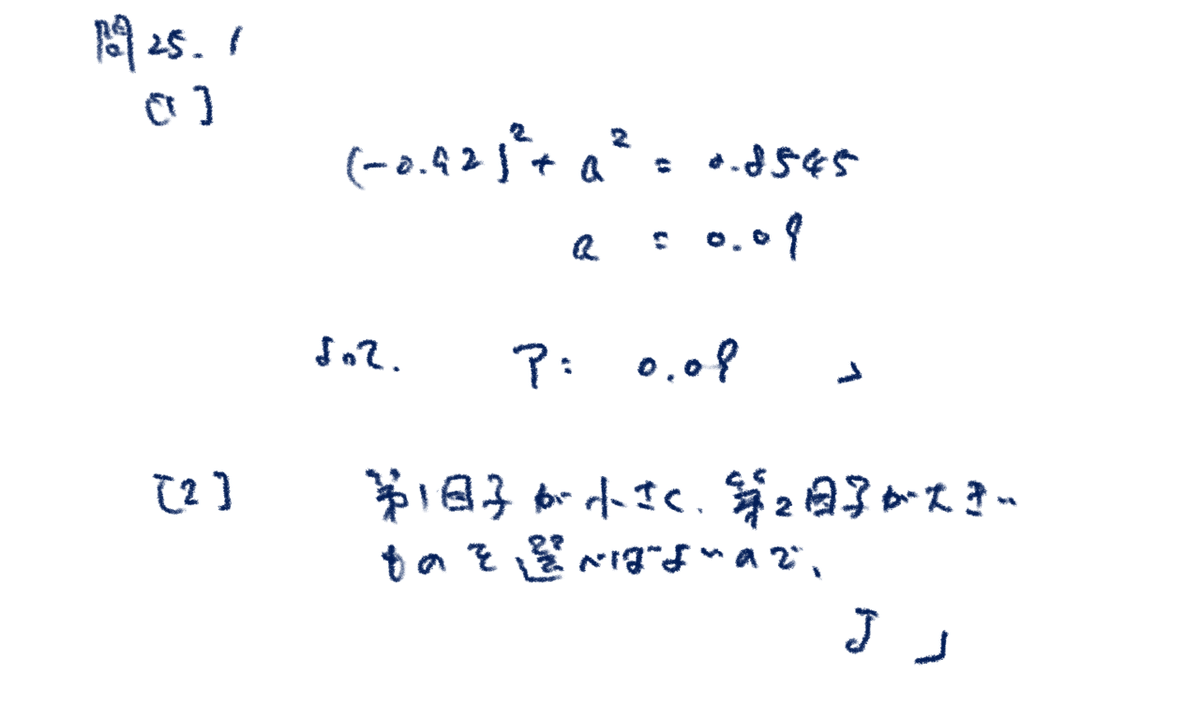 問25.1
[1]
(-0.92)² + a² = 0.8545
a = 0.09
よって. ア: 0.09 」
[2] 第1因子が小さく、第2因子が大きい
ものを選べばよいので、
J 」